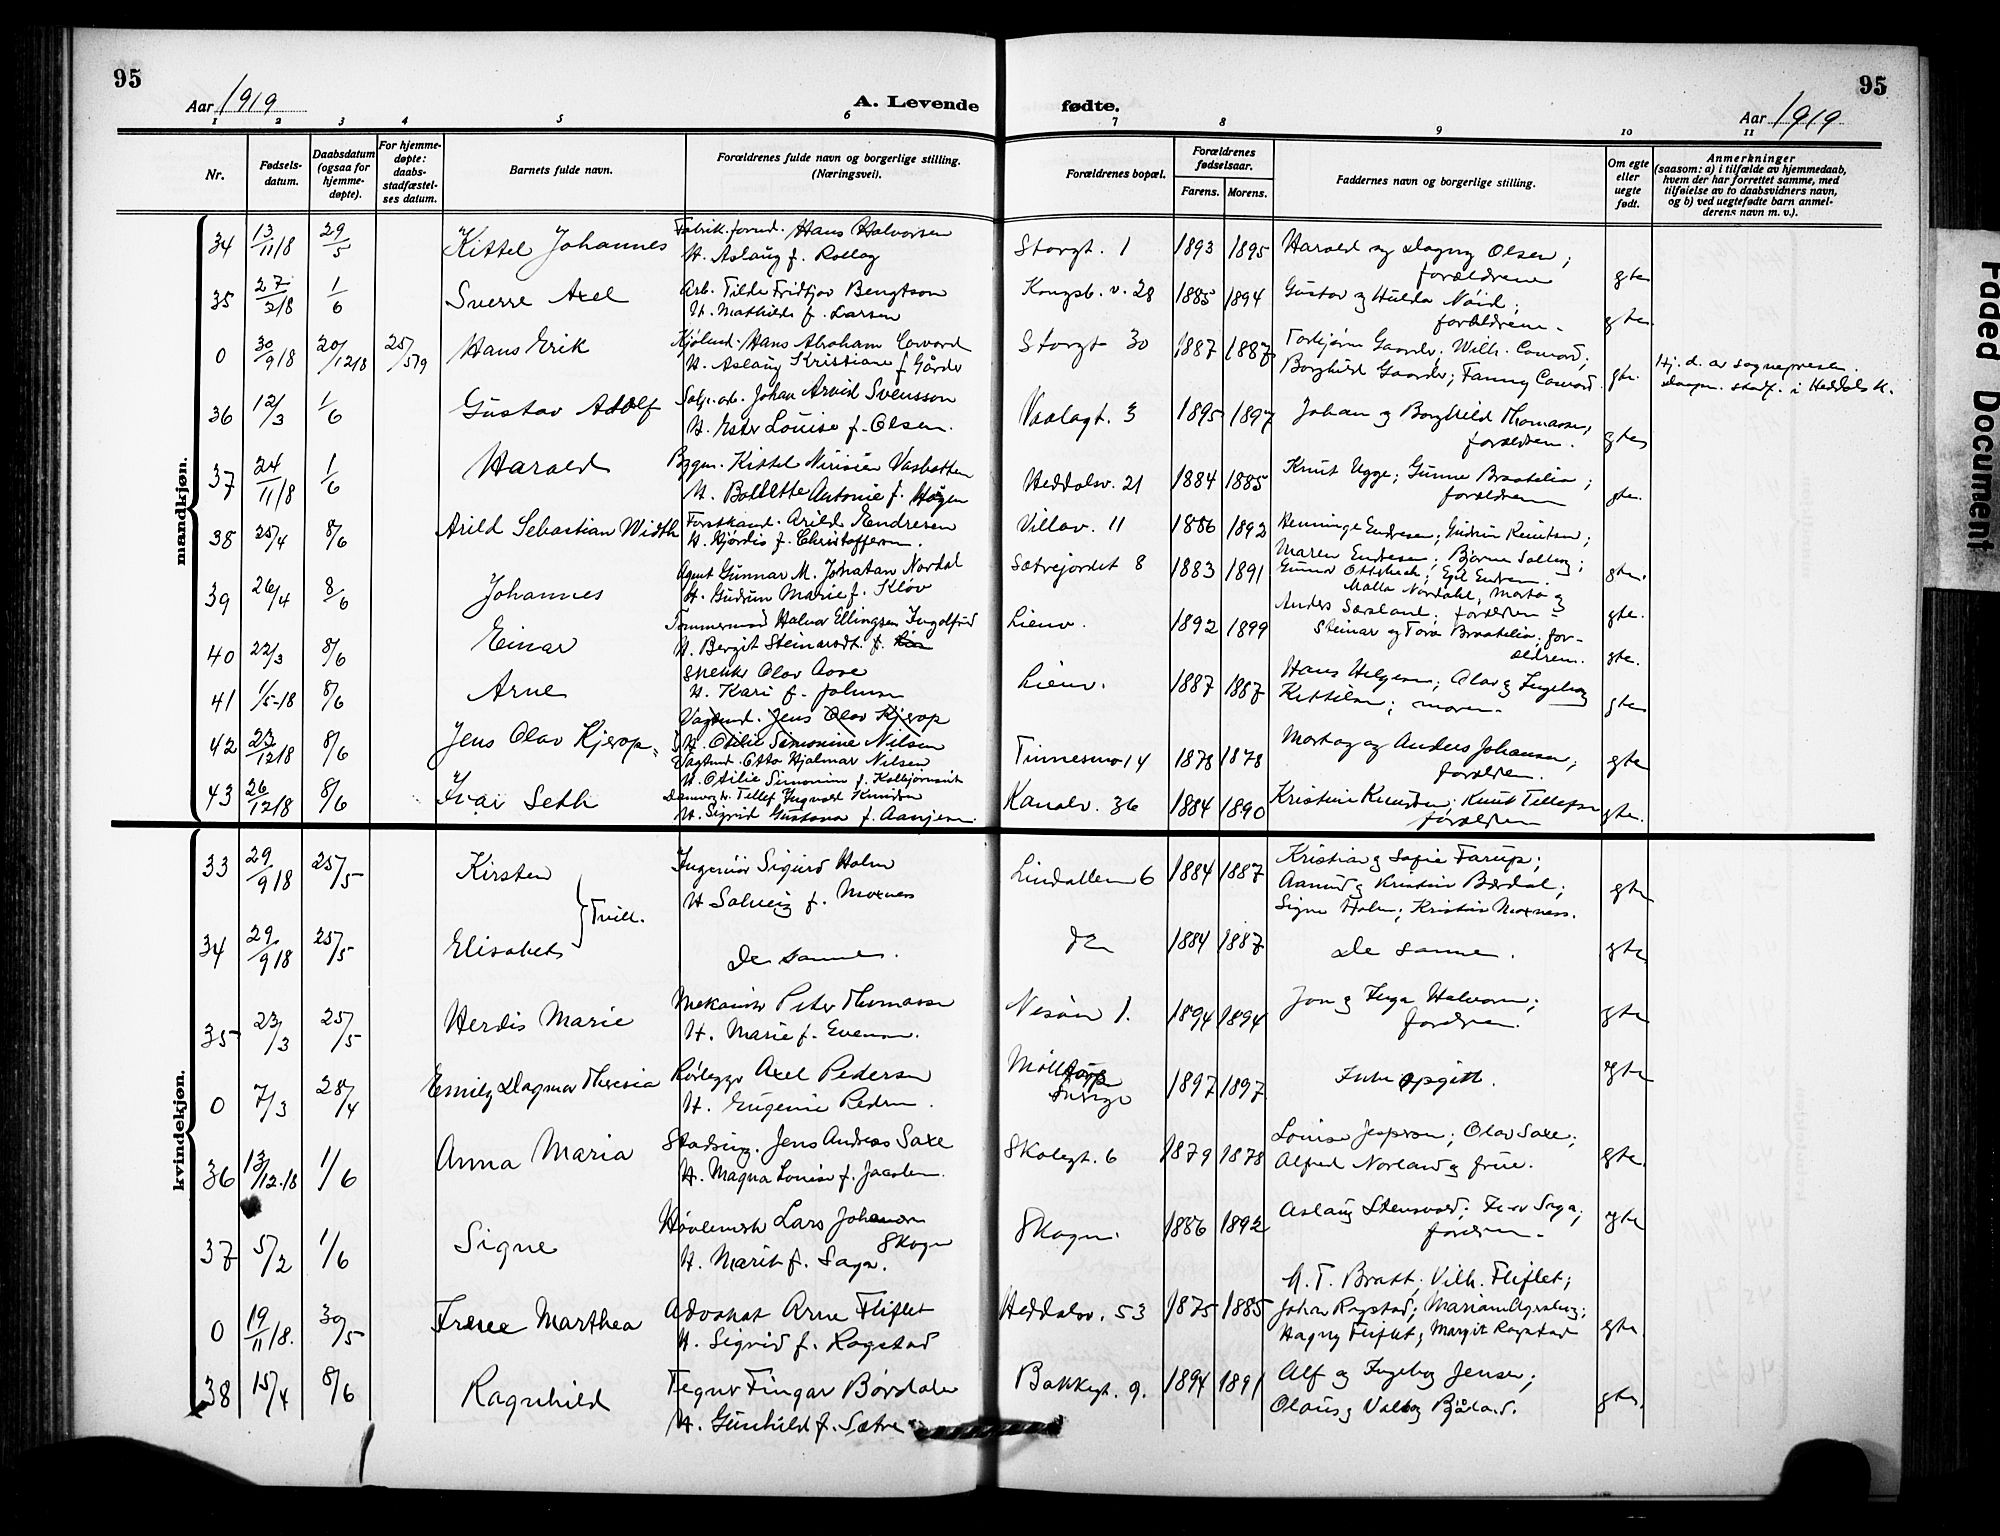 95
95
Aar 1919
A. Levende
fødte.
Aar 1919
1 2 3 4 5 6 7 8 9 10 11
Nr.
Fødsels-
datum.
Daabsdatum
(ogsaa for
hjemme-
døpte).
For hjemme-
døpte:
daabs-
stadfæstel-
ses datum.
Barnets fulde navn.
Forældrenes fulde navn og borgerlige stilling.
(Næringsvei).
Forældrenes bopæl.
Forældrenes
fødselsaar.
Farens. Morens.
Faddernes navn og borgerlige stilling.
Om egte
eller
uegte
født.
Anmerkninger
(saasom: a) i tilfælde av hjemmedaab,
hvem der har forrettet samme, med
tilføielse av to daabsvidners navn,
og b) ved uegtefødte barn anmel-
derens navn m. v.).
mandkjøn.
34 13/11 18 29/5 Kittel Johannes Fabrik.formd. Hans Halvorsen Storgt. 1 1893 1895 Harald og Dagny Olsen; gte
H. Aslaug f. Rollag forældrene
35 27/2 18 1/6 Sverre Axel Arb. Tilde Fridtjov Bengtson Kongsb. v. 28 1885 1894 Gustav og Hulda gte
H. Mathilde f. Larsen forældrene.
0 30/9 18 20/12 18 25/5 19 Hans Erik Hans Abraham Storgt 30 1887 1887 Torbjørn Gaarder; Wilh. Conrad; gte. Hj. d. av sognepresten.
H. Aslaug Kristiane f. Gårder Borghild Gaarder; Fanny Conrad. stadf. i Heddals K.
36 12/3 1/6 Gustav Adolf Johan Arvid Svensson Vaalagt. 3 1895 1897 Johan og Borghild Thomassen, gte
H. Ester Louise f. Olsen. forældren.
37 24/11 18 1/6 Harald Bygm. Kittel Vasbotten Heddalsv. 21 1884 1885 Knut Ugge; Gunne Braatelia; gte.
H. Bollette Antonie f. Høgen forældren
38 25/4 8/6 Arild Sebastian Width Forstkand. Arild Endresen Villav. 11 1886 1892 Henninge Endresen; Gudrun Knutsen; gte.
H. Hjørdis f. Christoffersen. Maren Endresen; Bjarne Solberg;
39 26/4 8/6 Johannes Agent Gunnar M. Jonatan Nordal Sætrejordet 8 1883 1891 gte.
H. Gudrun Marie f. Kløv Anders Sarsland; forældren
40 22/3 8/6 Einar Tømmermd Halvor Ellingsen Lienv. 1892 1899 Steinar og Tora Braatelia; for- gte.
H. Bergit Steinarsdt. f. ældren.
41 1/5-18 8/6 Arne Snekk Olav Aase Lienv. 1887 1887 Hans Helgesen; Olav og Ingeborg gte
H. Kari f. Johnsen Kittilsen; moren.
42 23/12 18 8/6 Jens Olav Kjerop. Vagtmd. Jens Olav Kjerop Tinnesmo 14 1878 1878 og Anders Johansen; gte
H. Otilie Simonine Nilsen forældren.
Vagtmd. Otto Hjalmar Nilsen
H. Otilie Simonine f. Kolbjørnsrud
43 26/12 18 8/6 Ivar Seth Tellef Ingvald Knudsen Kanalv. 36 1884 1890 Kristine Knudsen; Knut Tellefsen gte.
H. Sigrid Gustava f. Aanjesen. forældren
kvindekjøn.
33 29/9 18 25/5 Kirsten Ingeniør Sigurd Holm Lindalleen 6 1884 1887 Kristian og Sofie Farup; gte
Tvill. H Solveig f. Moxness Aamund og Kristine Bærdal;
Signe Holm; Kristine Moxness.
34 29/9 18 25/5 Elisabet De samme. do 1884 1887 De samme. gte
35 23/3 25/5 Herdis Marie Mekanik Peter Thomassen Nesøen 1. 1894 1894 Jon og Inga Halvorsen; gte
H. Marie f. Evensen. forældren.
0 7/3 28/4 Emily Dagmar Theresia Rørlegger Axel Pedersen Mölltorp 1897 1897 Ikke opgitt. gte
H. Eugenie Pedersen. Sverige
36 13/12.18 1/6 Anna Maria Stadsing. Jens Andreas Saxe Skolegt. 6 1879 1878 Louise Jespersen; Olav Saxe; gte.
H. Magna Louise f. Jacobsen. Alfred Norland og frue.
37 5/2 1/6 Signe Høvlemester Lars Johansen Skogen. 1886 1892 Aslaug Stensvold; Iver Saga; gte
Skogen
H. Marit f. Saga. forældren.
0 19/11 18. 30/5 Irene Marthea Advokat Arne Fliflet Heddalsv. 53 1875 1885 M. T. Bratt; Vilh. Fliflet; gte.
H. Sigrid f. Rogstad Johan Rogstad; Mariann
Hagny Fliflet; Margit Rogstad
38 15/4 8/6 Ragnhild Tegner Fingar Børdalen Bakkegt. 9. 1894 1891 Alf og Ingeborg Jensen; gte.
H. Gunhild f. Sætre Olaus og Valborg Bjåland.
Faded Document